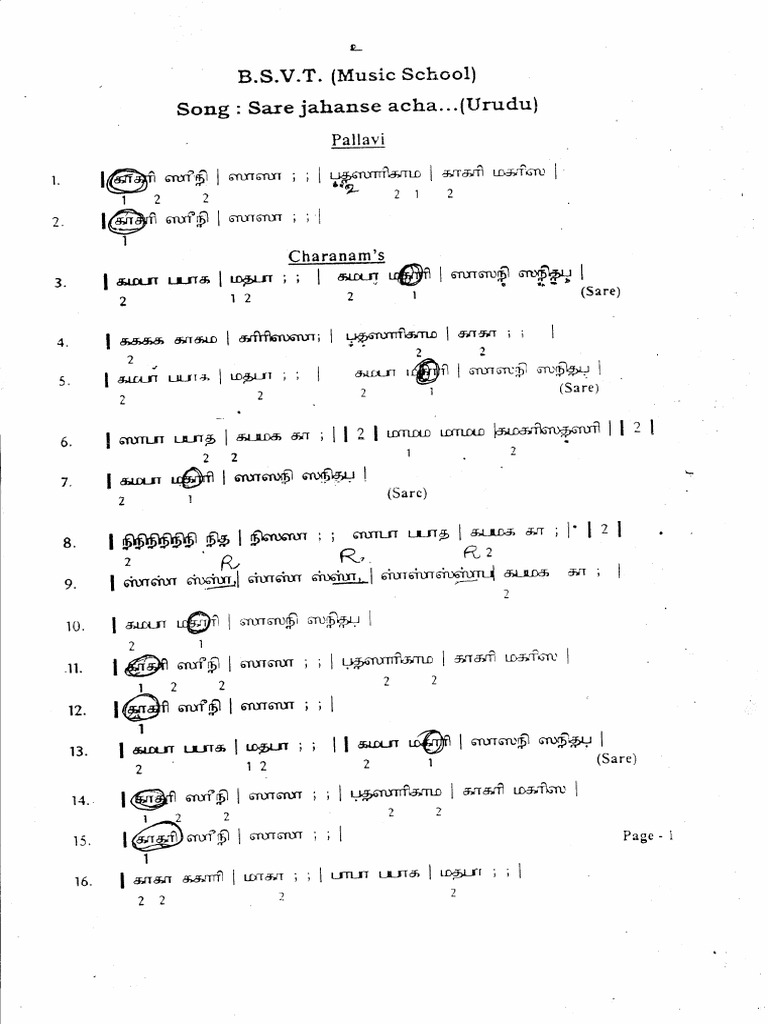 உ
B.S.V.T. (Music School)
Song : Sare jahanse acha...(Urudu)
Pallavi
1. | காகரி ஸரீநி | ஸாஸா ; ; | பதஸாரிகாம | காகரி மகரிஸ |
1 2 2 2 2 1 2
2. | காகரி ஸரீநி | ஸாஸா ; ; |
1
Charanam's
3. | கமபா பபாக | மதபா ; ; | கமபா மகாரி | ஸாஸநி ஸநிதப |
2 1 2 2 1 (Sare)
4. | கககக காகம | கரிரிஸஸா; | பதஸாரிகாம | காகா ; ; |
2 2 2
5. | கமபா பபாக | மதபா ; ; கமபா மகாரி | ஸாஸநி ஸநிதப |
2 2 2 1 (Sare)
6. | ஸாபா பபாத | கபமக கா ; | | 2 | மாமம மாமம |கமகரிஸதஸரி | 2 |
2 2 1 2
7. | கமபா மகாரி | ஸாஸநி ஸநிதப |
2 1 (Sare)
8. | நிநிநிநிநிநி நித | நிஸஸா ; ; ஸாபா பபாத | கபமக கா ; | | 2 |
2 R R, R 2
9. | ஸ்ாஸ்ா ஸ்ஸ்ா, | ஸ்ாஸ்ா ஸ்ஸ்ா, | ஸ்ாஸ்ாஸ்ஸ்ாப | கபமக கா ; |
2
10. | கமபா மகாரி | ஸாஸநி ஸநிதப |
2 1
11. | காகரி ஸரீநி | ஸாஸா ; ; | பதஸாரிகாம | காகரி மகரிஸ |
1 2 2 2 2
12. | காகரி ஸரீநி | ஸாஸா ; ; |
1
13. | கமபா பபாக | மதபா ; ; | | கமபா மகாரி | ஸாஸநி ஸநிதப |
2 1 2 2 1 (Sare)
14. | காகரி ஸரீநி | ஸாஸா ; ; | பதஸாரிகாம | காகரி மகரிஸ |
1 2 2 2 2
15. | காகரி ஸரீநி | ஸாஸா ; ; | Page - 1
1
16. | காகா ககாரி | மாகா ; ; | பாபா பபாக | மதபா ; ; |
2 2 2 2